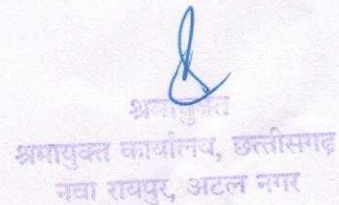 श्रमायुक्त
श्रमायुक्त कार्यालय, छत्तीसगढ़
नवा रायपुर, अटल नगर